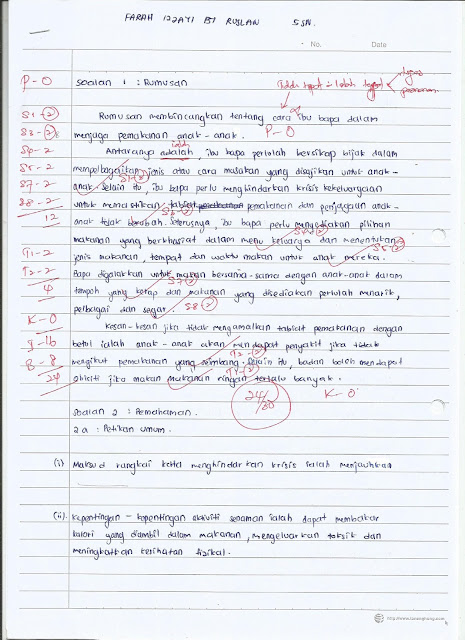 FARAH IZZAYI BT RUSLAN 5SN.
No. Date
P-O Soalan 1 : Rumusan
S1-2 Rumusan membincangkan tentang cara ibu bapa dalam
S3-2 menjaga pemakanan anak-anak. P-O
S4-2 Antaranya adalah, ibu bapa perlulah bersikap bijak dalam
S5-2 mempelbagaikan jenis atau cara makanan yang disajikan untuk anak-
S7-2 anak. Selain itu, ibu bapa perlu menghindarkan krisis kekeluargaan
S8-2 untuk memastikan tabiat pemakanan dan penjagaan anak-
12 anak tidak berubah. Seterusnya, ibu bapa perlu menyediakan pilihan
makanan yang berkhasiat dalam menu keluarga dan menentukan
T1-2 jenis makanan, tempat dan waktu makan untuk anak mereka.
T2-2 Bapa digalakkan untuk makan bersama-sama dengan anak-anak dalam
4 tempoh yang kerap dan makanan yang disediakan perlulah menarik,
pelbagai dan segar. S8-2
K-O Kesan-kesan jika tidak mengamalkan tabiat pemakanan dengan
J-16 betul ialah anak-anak akan mendapat penyakit jika tidak
B-8 mengikut pemakanan yang seimbang. Selain itu, badan boleh mendapat
24 obisiti jika makan makanan ringan terlalu banyak.
24/30 K-O
Soalan 2 : Pemahaman.
2a : Petikan umum.
(i) Maksud rangkai kata menghindarkan krisis ialah menjauhkan
(ii) Kepentingan-kepentingan aktiviti senaman ialah dapat membakar
kalori yang diambil dalam makanan, mengeluarkan toksik dan
meningkatkan kesihatan fizikal.